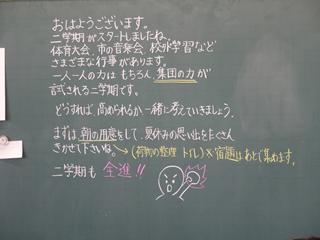 おはようございます。
二学期がスタートしましたね。
体育大会、市の音楽会、校外学習など
さまざまな行事があります。
一人一人の力は もちろん、集団の力が
試される二学期です。
どうすれば、高められるか 一緒に考えていきましょう。
まずは、朝の用意をして、夏休みの思い出をたくさん
きかせて下さいね。→(荷物の整理 トイレ)×宿題はあとで集めます。
二学期も 全進!!